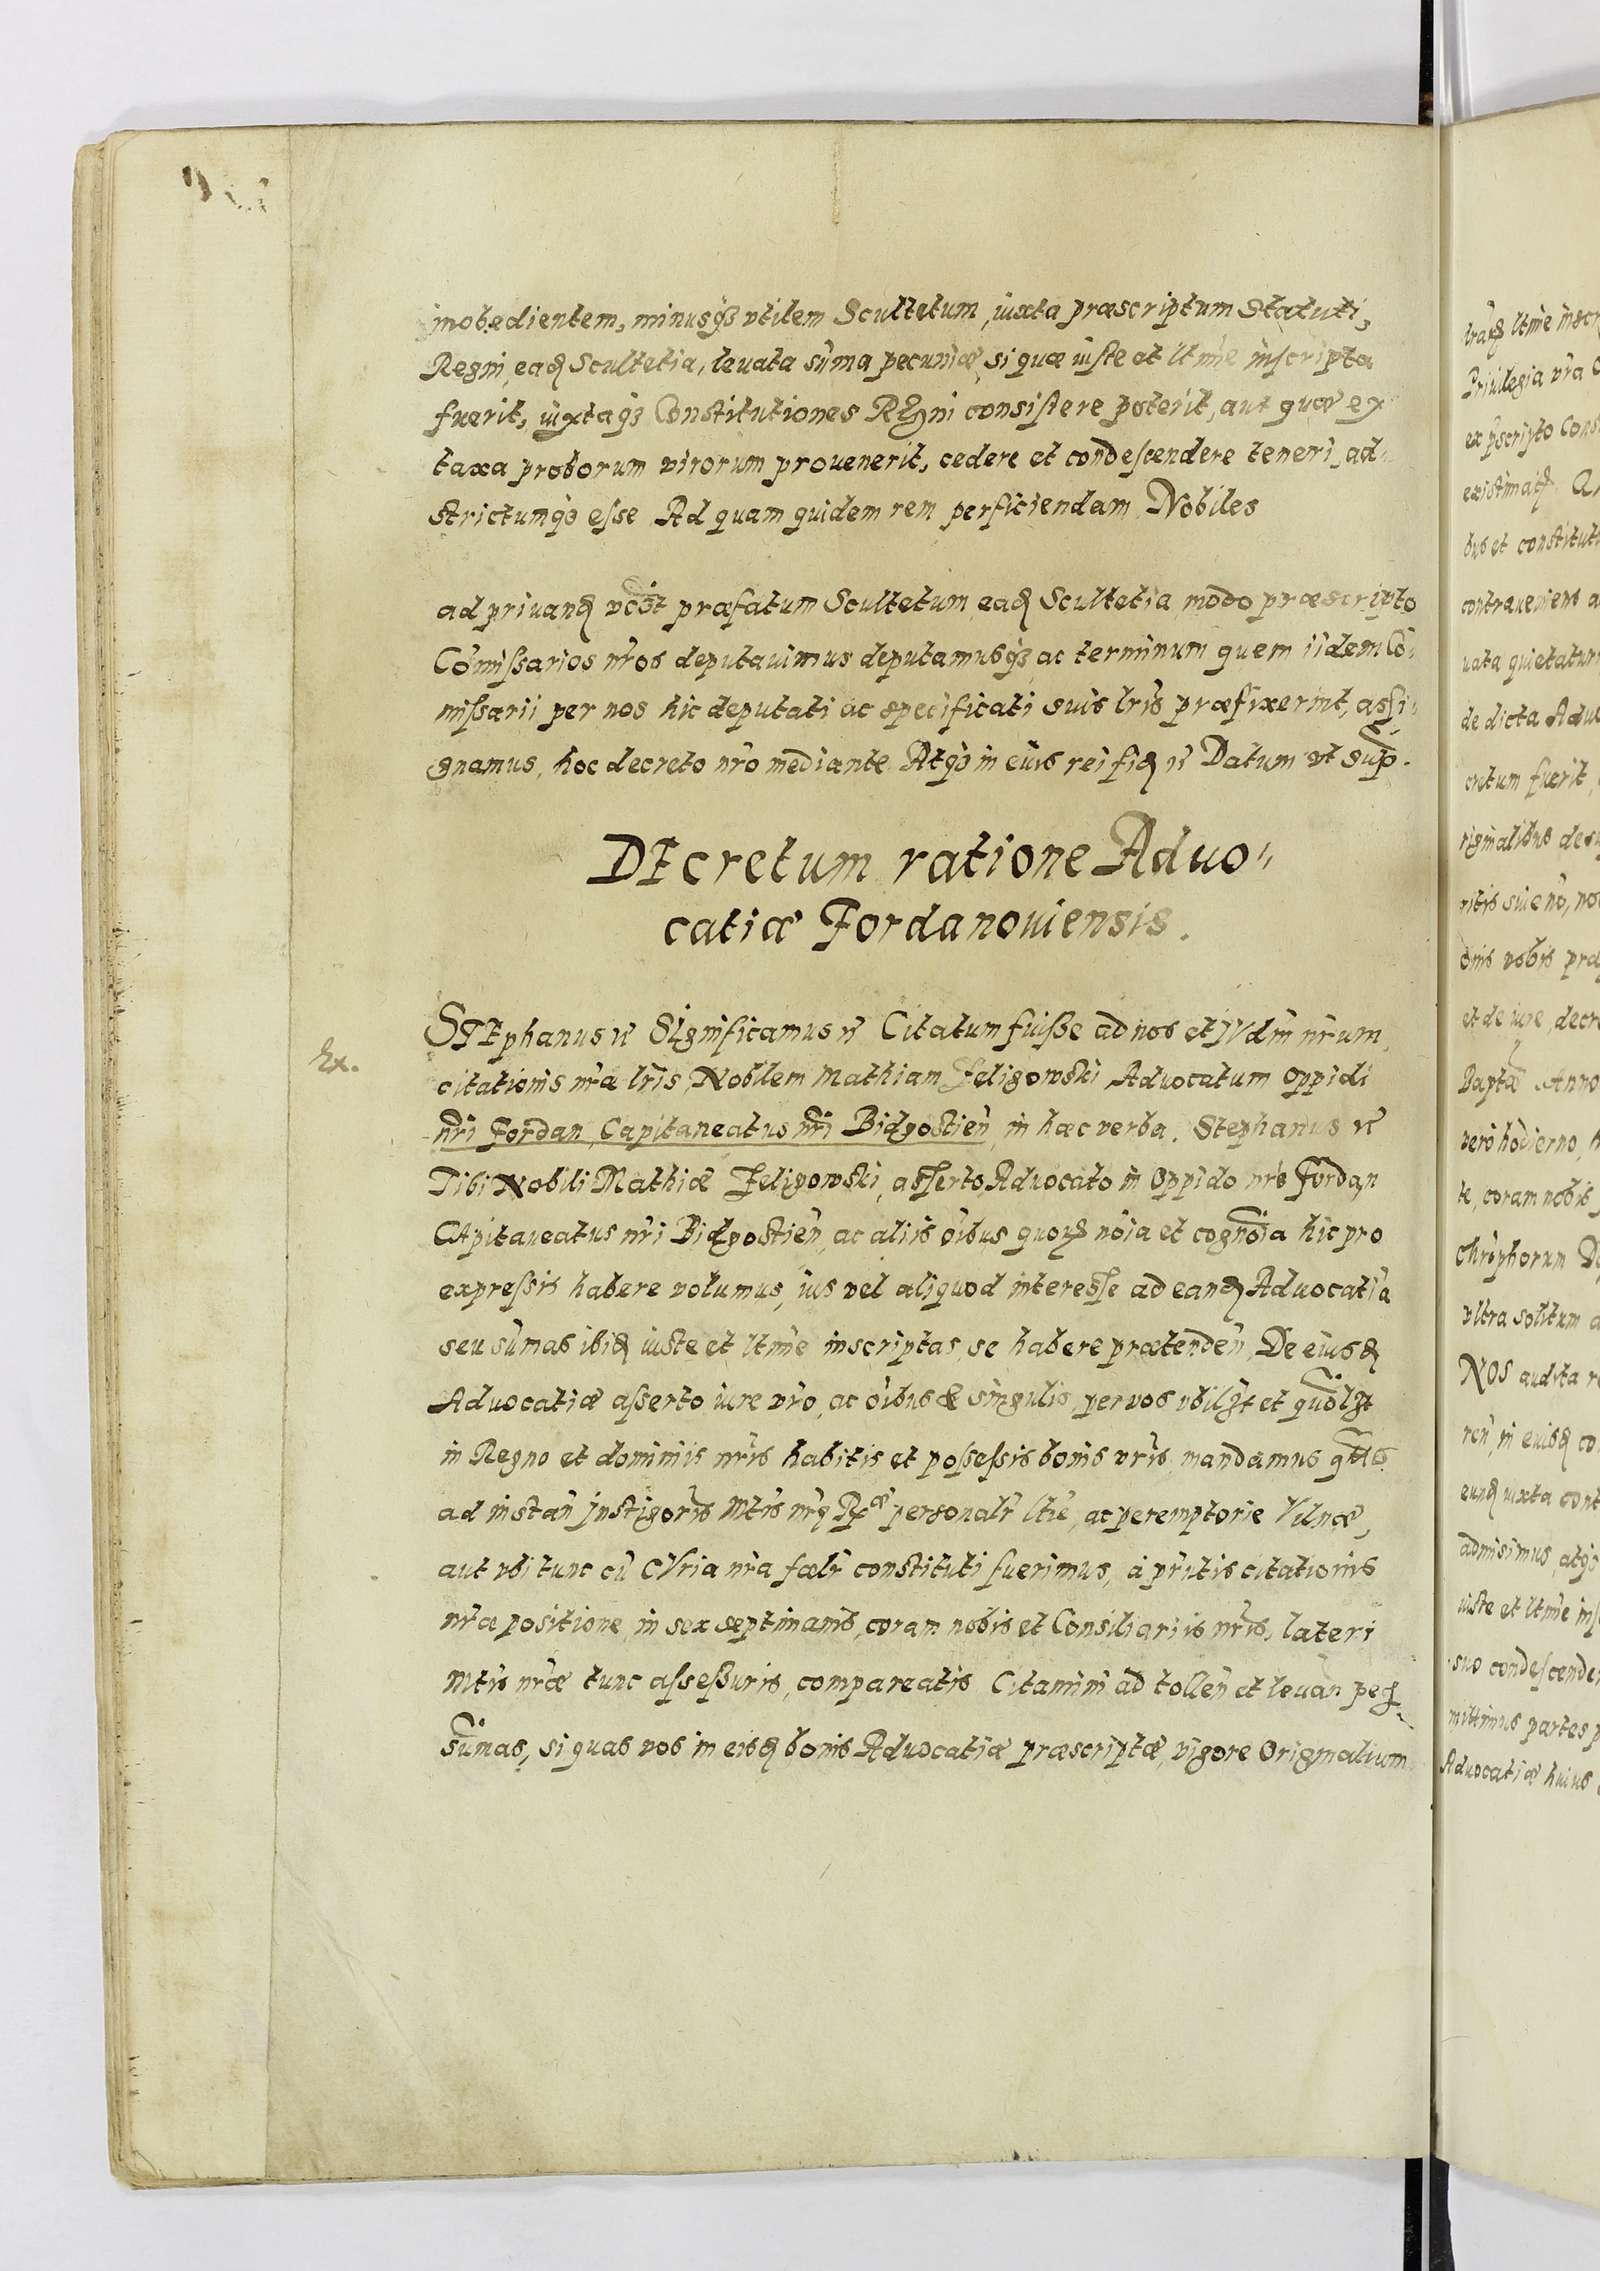 inobedientem, minusq3 vtilem Scultetum, iuxta præscriptum Statuti,
Regni, eadꝫ Scultetia, leuata sũma pecuniæ, si quæ iuste et ltĩme inscripta
fuerit, iuxtaq3 Constitutiones REgni consistere poterit, aut quæ ex
taxa proborum virorum prouenerit, cedere et condescendere teneri, ad-
strictumq3 esse Ad quam quidem rem perficiendam Nobiles
ad priuandꝫ præfatum Scultetum eadꝫ Scultetia modo præscripto
Cõmissarios nr̃os deputauimus deputamusq3 ac terminum quem iidem Cõ-
missarii per nos hic deputati ac specificati suis lr̃is præfixerint, assi-
gnamus, hoc decreto nr̃o mediante. Atq3 in eius rei fidꝫ Datum vt sup̃.
DEcretum ratione Aduo"
catiæ Fordanouiensis.
STEphanus Significamus Citatum fuisse ad nos et Iudm̃ nr̃um,
Ex.
citationis nr̃æ lr̃is, Nobilem Mathiam Zeligowski Aduocatum Oppidi
nr̃i Fordan, Capitaneatus nr̃i Bidgostieñ, in hæc verba. Stephanus
Tibi Nobili Mathiæ Zeligowski, asserto Aduocato in Oppido nr̃o Fordan
CApitaneatus nr̃i Bidgostieñ, ac aliis õibus quoꝝ nõia et cognõia hic pro
expressis habere volumus, ius vel aliquod interesse ad eandꝫ Aduocatiã
seu sũmas ibidꝫ iuste et ltĩme inscriptas, se habere prætendeñ, De eiusdꝫ
Aduocatiæ asserto iure vr̃o, ac õibus & singulis, per vos vbilꝫt et quõlꝫt
in Regno et dominiis nr̃is habitis et possessis bonis vr̃is, mandamus
ad instañ Instigoris Mtis nr̃æ personalr̃ ltĩe, ac peremptorie Vilnæ,
aut vbi tunc cũ CVria nr̃a fœlr̃ constituti fuerimus, à pñtis citationis
nr̃æ positione, in sex septimanis, coram nobis et Consiliariis nr̃is, lateri
Mtis nr̃æ tunc assessuris, compareatis Citamini ad tolleñ et leuañ
sũmas, si quas vos in eisdꝫ bonis Aduocatiæ præscriptæ, vigore Originalium
ltĩme inscr
Priuilegia vr̃a
ex p̃scripto Const
bus et constituti
contrauenient a
uata quietatum
de dicta Aduo
cretum fuerit,
riginalibus de su
ritis siue nõ, no
onis vobis præ
et de iure, decre
Anno
vero hodierno,
te, coram nobis
Chr̃iphorum
vltra solitum a
NOS audita
reñ, in eiusdꝫ co
eundꝫ iuxta cont
admisimus, atq3
iuste et ltĩme ins
suo condescender
mittimus partes p
Aduocatiæ huius